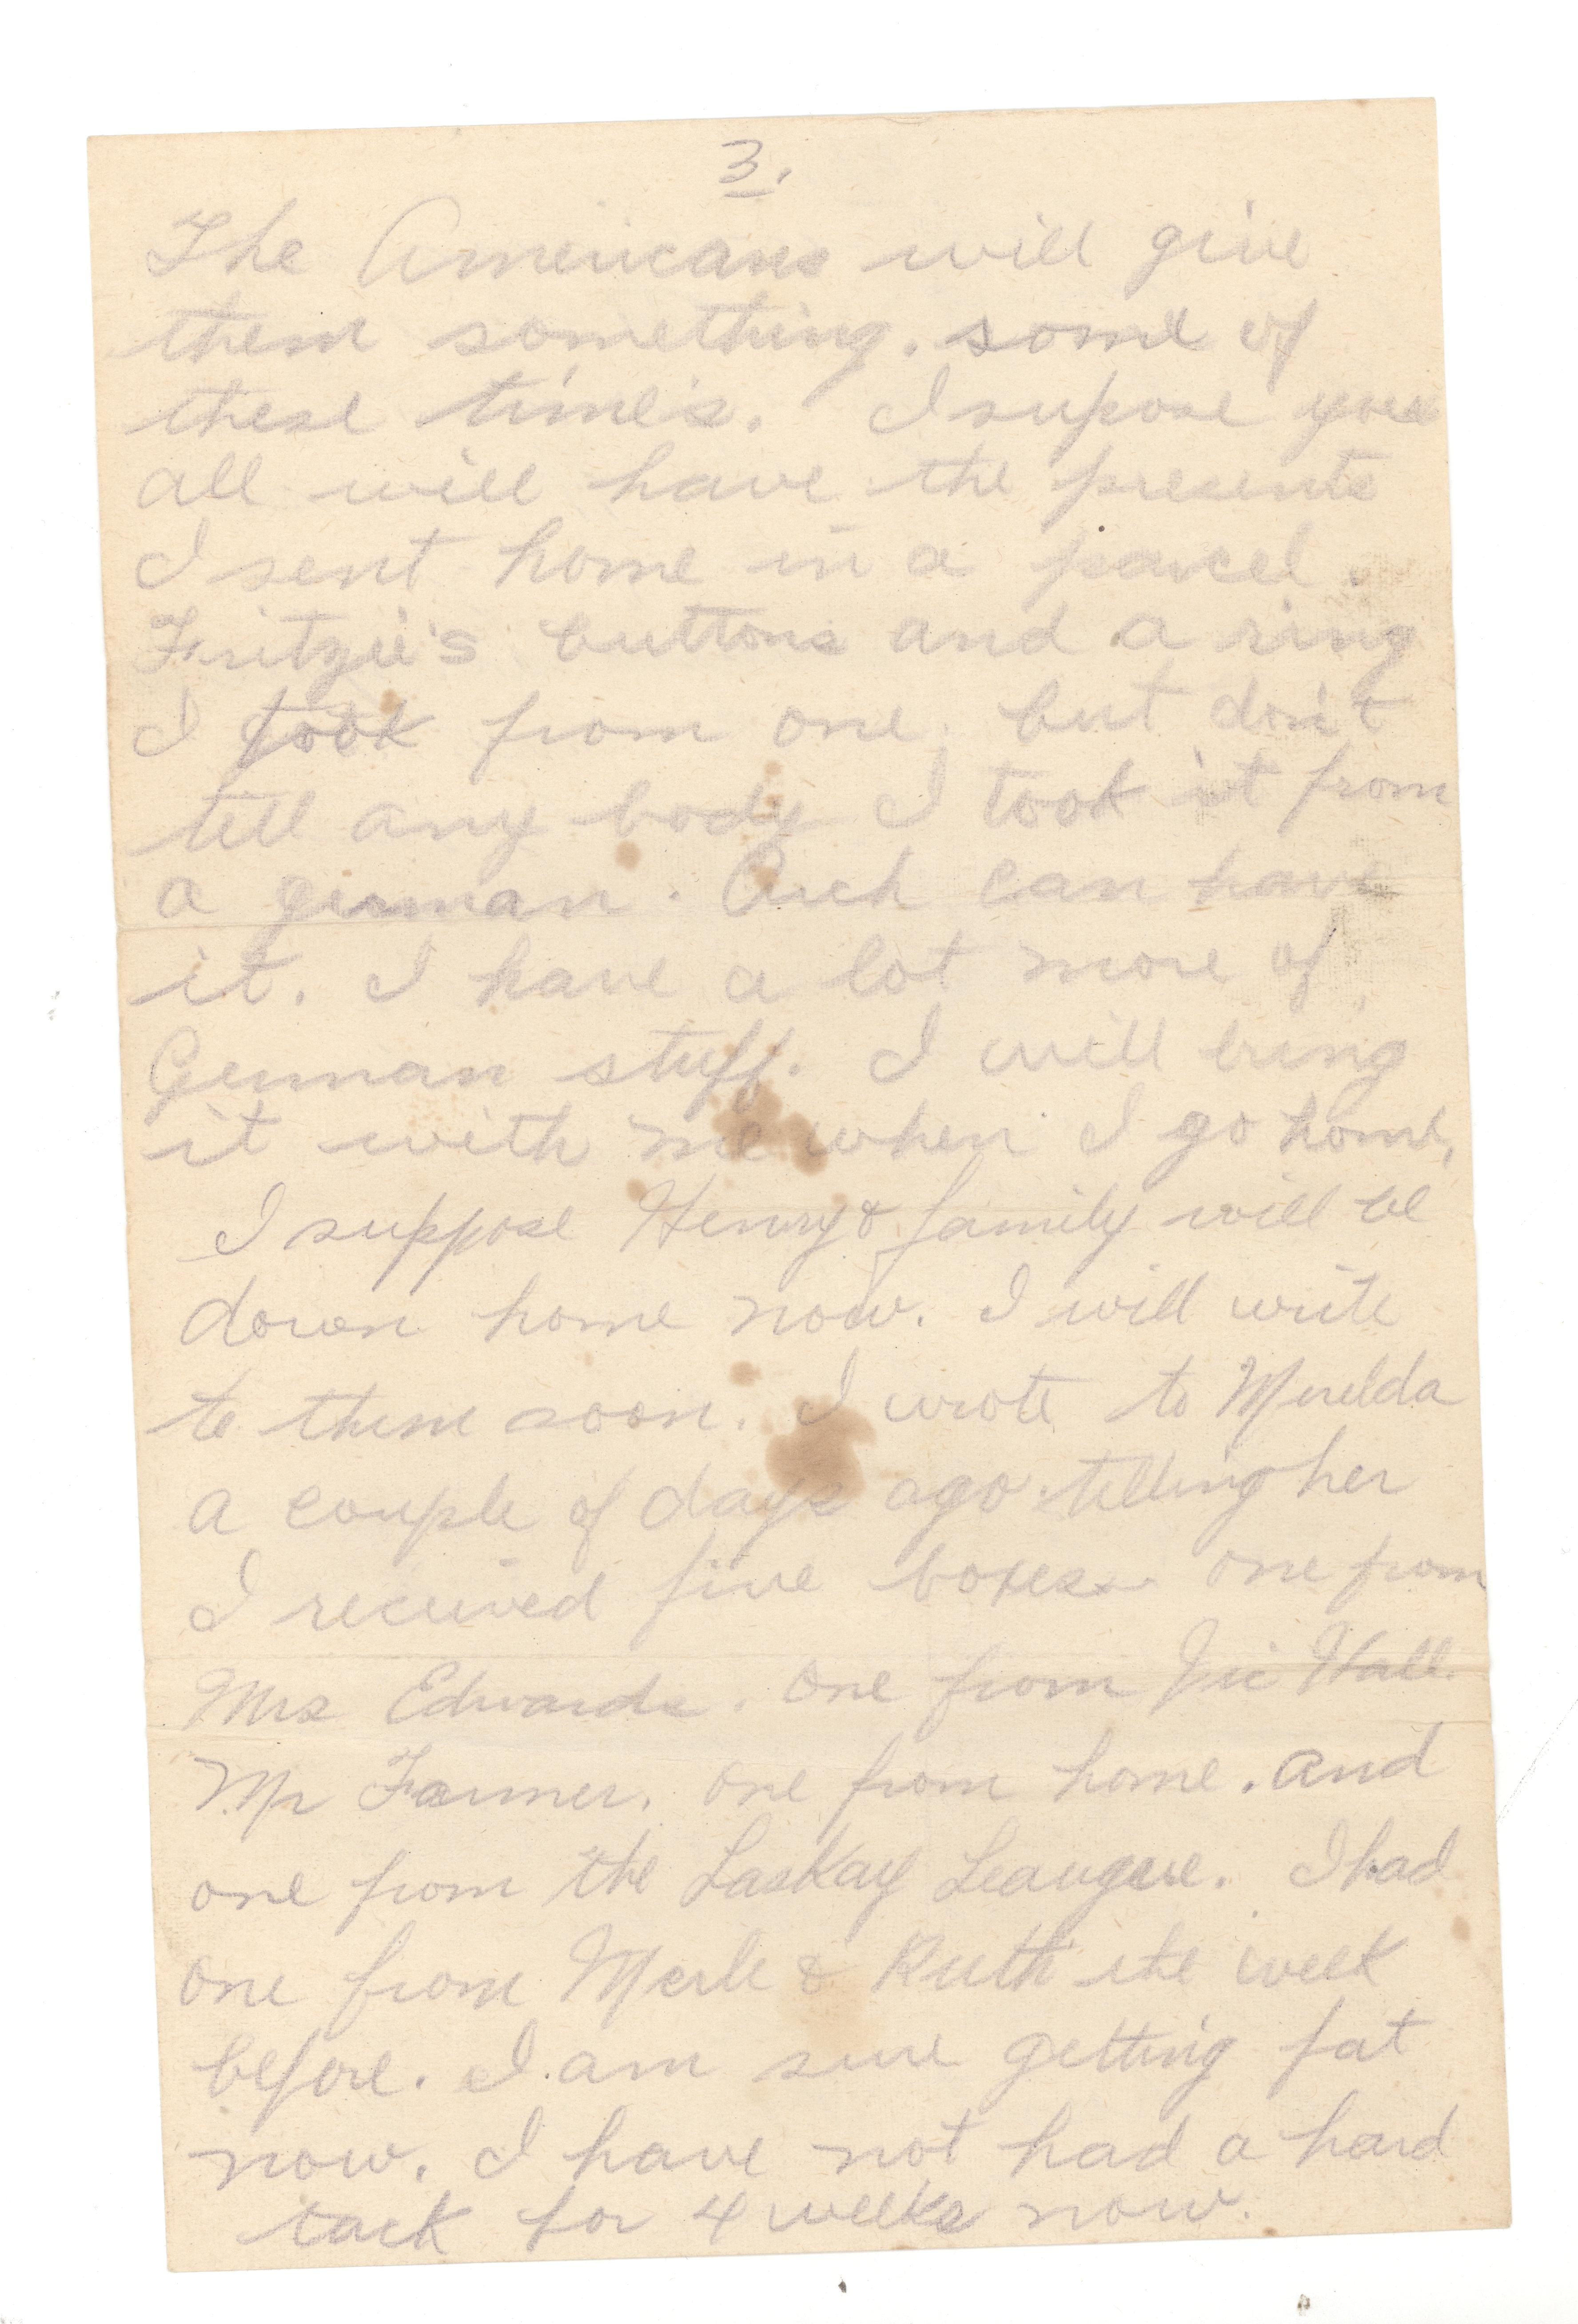 3.
The Americans will give
them something. some of
these time's. I supose you
all will have the presents
I sent home in a parcel.
Fritzie's buttons and a ring
I took from one. but don't
tell any body I took it from
a german. Arch can have
it. I have a lot more of
German stuff. I will bring
it with me when I go home,
I suppose Henry & family will be
down home now. I will write
to them soon. I wrote to Merelda
a couple of days ago telling her
I received five boxes one from
Mrs Edwards. one from Vic Hall.
Mr Farmer. one from home. and
one from the Laskay Leaugue. I had
one from Merle & Ruth the week
before. I am sure getting fat
now. I have not had a hard
tack for 4 weeks now.